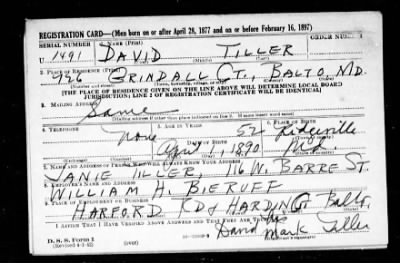 REGISTRATION CARD—(Men born on or after April 28, 1877 and on or before February 16, 1897)
SERIAL NUMBER 1. NAME (Print) ORDER NUMBER
U 1491 DAVID TILLER
(First) (Middle) (Last)
2. PLACE OF RESIDENCE (Print)
926 GRINDALL CT., BALTO MD.
(Number and street) (Town, township, village, or city) (County) (State)
[THE PLACE OF RESIDENCE GIVEN ON THE LINE ABOVE WILL DETERMINE LOCAL BOARD
JURISDICTION; LINE 2 OF REGISTRATION CERTIFICATE WILL BE IDENTICAL]
3. MAILING ADDRESS
Same
[Mailing address if other than place indicated on line 2. If same insert word same]
4. TELEPHONE 5. AGE IN YEARS 6. PLACE OF BIRTH
None 52
DATE OF BIRTH
April 1, 1890 Md.
7. NAME AND ADDRESS OF PERSON WHO WILL ALWAYS KNOW YOUR ADDRESS
JANIE TILLER, 116 W. BARRE ST.
8. EMPLOYER'S NAME AND ADDRESS
WILLIAM H. BIERUFF
9. PLACE OF EMPLOYMENT OR BUSINESS
HARFORD RD & HARDING Balto.
I AFFIRM THAT I HAVE VERIFIED ABOVE ANSWERS AND THAT THEY ARE TRUE.
David his
D. S. S. Form 1 mark Tiller
(Revised 4-1-42) (over)